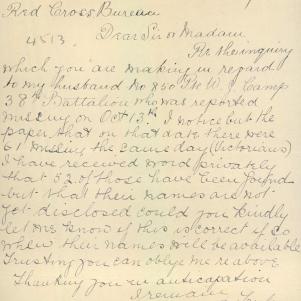 Red Cross Bureau
4513. Dear Sir or Madam.
Re the inquiry
which you are making in regard
to my husband No 850 Pte W. J. Camp
38th Battalion who was reported
missing on Oct 13th I notice by the
paper that on that date there were
61 missing the same day (Victorians)
I have received word privately
that 32 of those have been found
but that their names are not
yet disclosed could you kindly
let me know if this is correct & so
when their names will be available
Trusting you can oblige me re above
Thanking you in anticapation
I remain